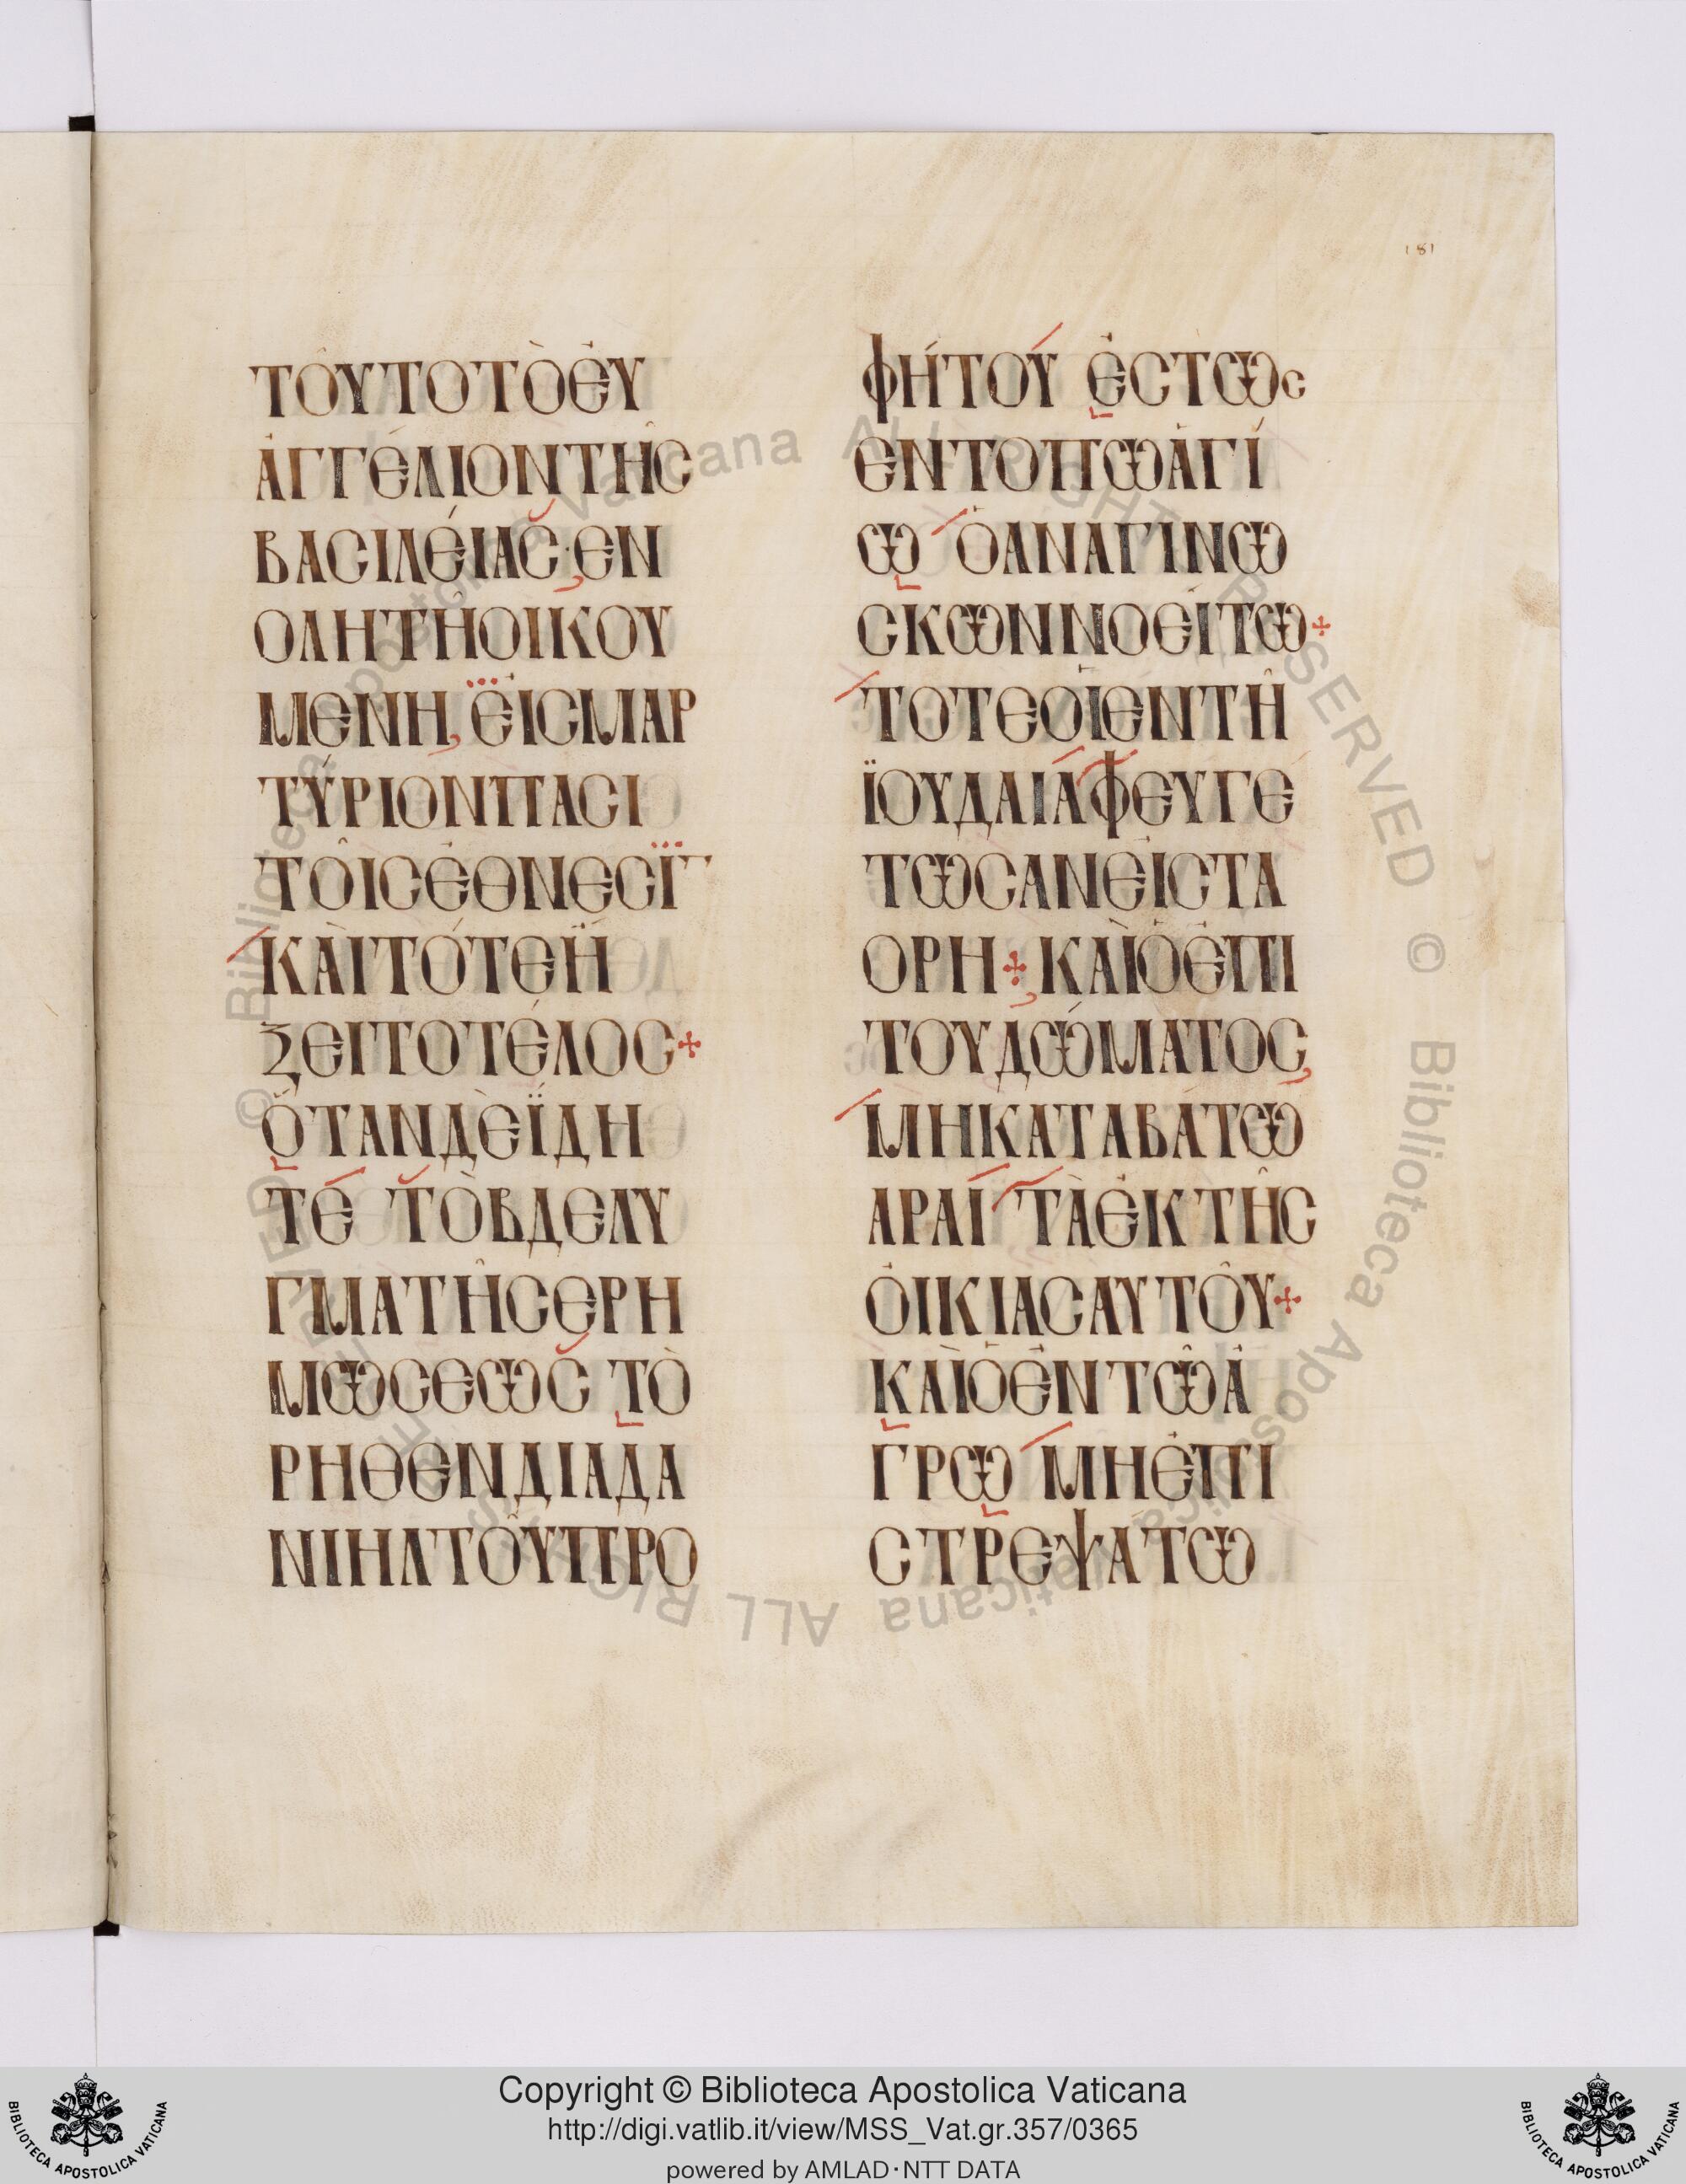 181
ΤΟΥΤΟΤΟΕΥ
ΑΓΓΕΛΙΟΝΤΗϹ
ΒΑϹΙΛΕΙΑϹ·ΕΝ
ΟΛΗΤΗΟΙΚΟΥ
ΜΕΝΗ ΕΙϹΜΑΡ
ΤΥΡΙΟΝΠΑϹΙ
ΤΟΙϹΕΘΝΕϹΪ
ΚΑΙΤΟΤΕΗ
ΞΕΙΤΟΤΕΛΟϹ+
ΟΤΑΝΔΕΪΔΗ
ΤΕ ΤΟΒΔΕΛΥ
ΓΜΑΤΗϹΕΡΗ
ΜΩϹΕΩϹ ΤΟ
ΡΗΘΕΝΔΙΑΔΑ
ΝΙΗΛΤΟΥΠΡΟ
ΦΗΤΟΥ ΕϹΤΩϹ
ΕΝΤΟΠΩΑΓΙ
Ω ΟΑΝΑΓΙΝΩ
ϹΚΩΝΝΟΕΙΤΩ+
ΤΟΤΕΟΙΕΝΤΗ
ΪΟΥΔΑΙΑΦΕΥΓΕ
ΤΩϹΑΝΕΙϹΤΑ
ΟΡΗ+ΚΑΙΟΕΠΙ
ΤΟΥΔΩΜΑΤΟϹ
ΜΗΚΑΤΑΒΑΤΩ
ΑΡΑΙ ΤΑΕΚΤΗϹ
ΟΙΚΙΑϹΑΥΤΟΥ+
ΚΑΙΟΕΝΤΩΑ
ΓΡΩ ΜΗΕΠΙ
ϹΤΡΕΨΑΤΩ
© Biblioteca Apostolica Vaticana ALL RIGHTS RESERVED © Biblioteca Apostolica Vaticana ALL RIGHTS RESERVED
Copyright © Biblioteca Apostolica Vaticana
http://digi.vatlib.it/view/MSS_Vat.gr.357/0365
powered by AMLAD·NTT DATA
BIBLIOTECA APOSTOLICA VATICANA
BIBLIOTECA APOSTOLICA VATICANA